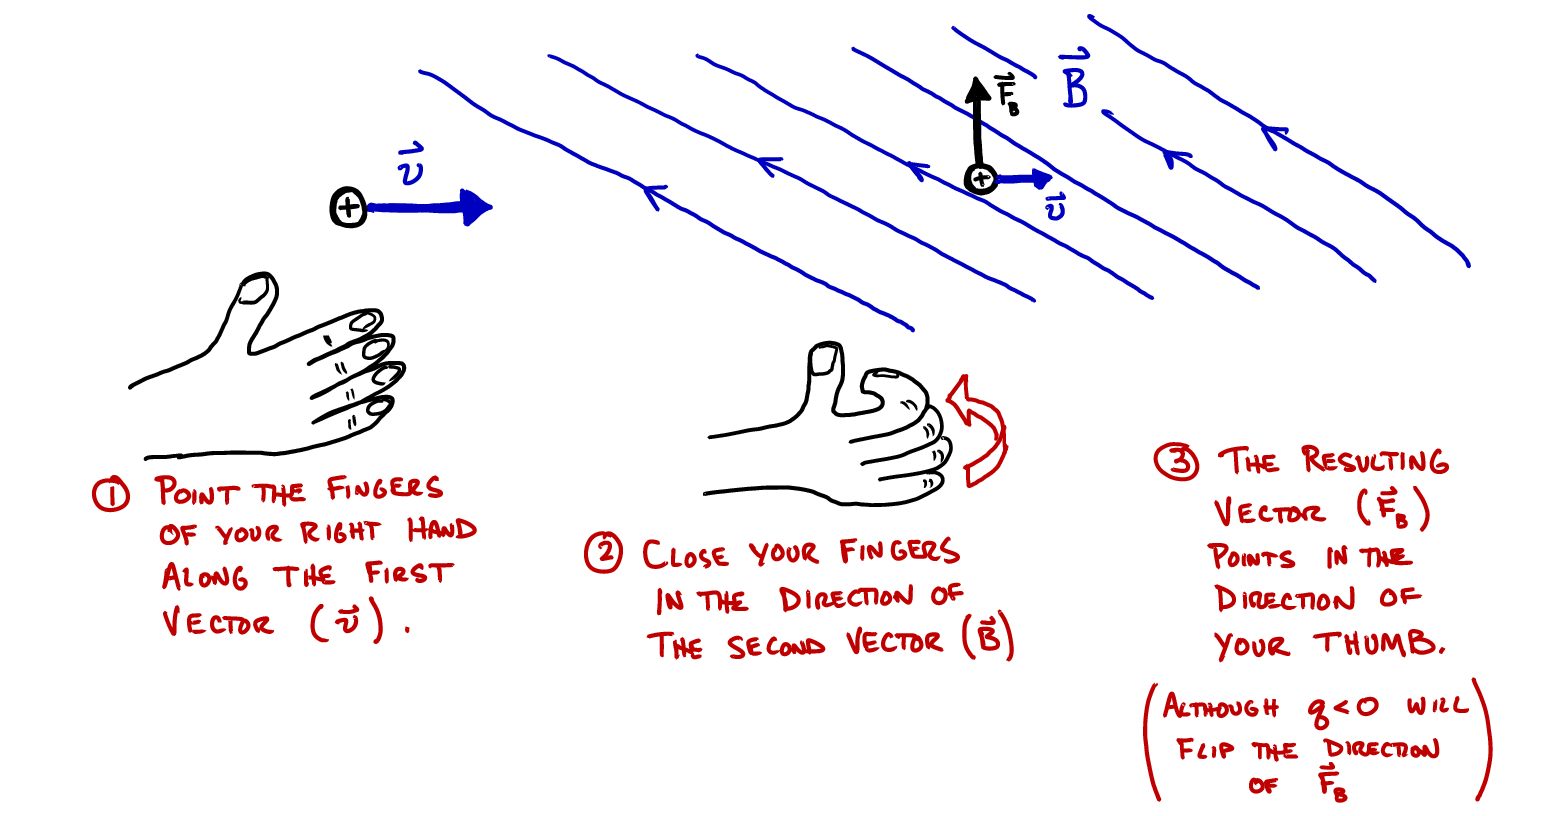 v⃗
+
B⃗
F⃗_B
+
v⃗
① POINT THE FINGERS
OF YOUR RIGHT HAND
ALONG THE FIRST
VECTOR (v⃗).
② CLOSE YOUR FINGERS
IN THE DIRECTION OF
THE SECOND VECTOR (B⃗)
③ THE RESULTING
VECTOR (F⃗_B)
POINTS IN THE
DIRECTION OF
YOUR THUMB.
(ALTHOUGH q<0 WILL
FLIP THE DIRECTION
OF F⃗_B)